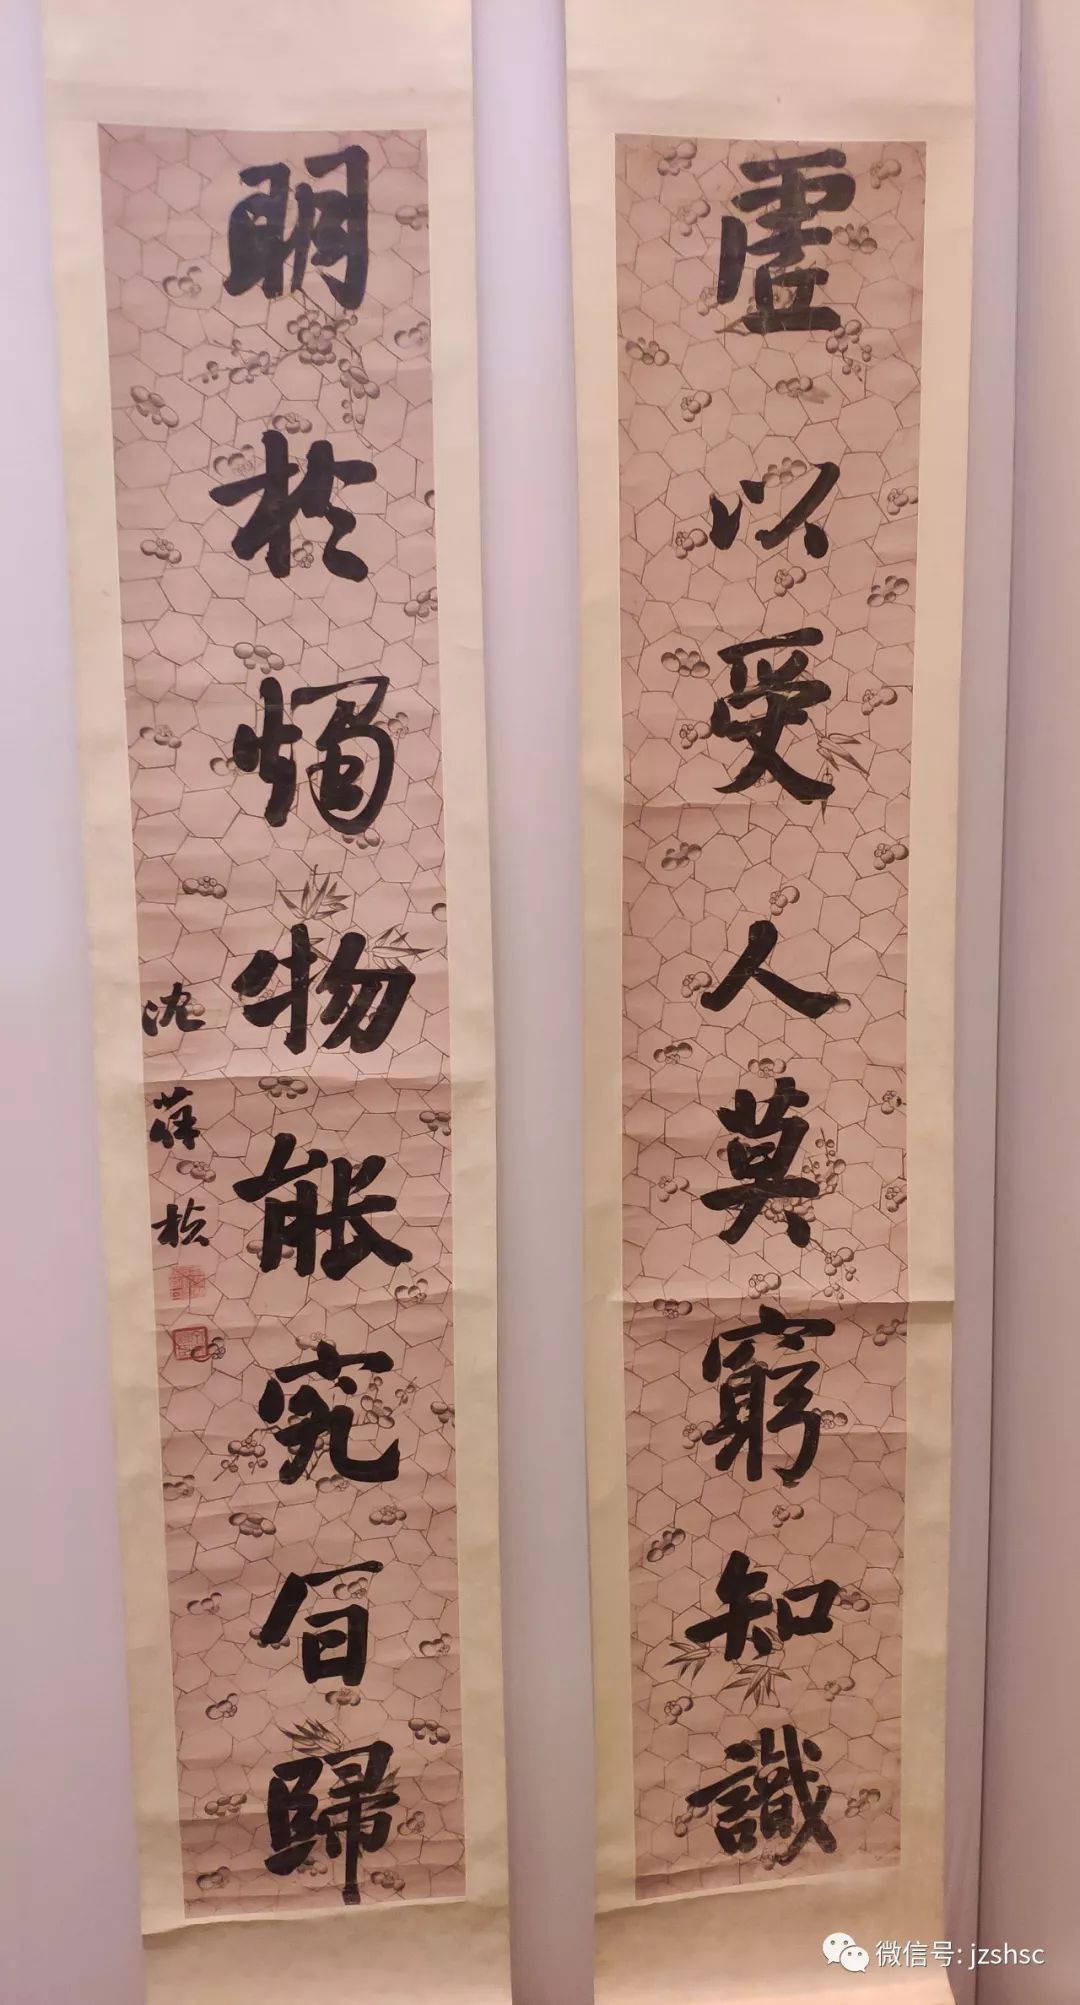 虛以受人莫窮知識
明於燭物能究旨歸
沈葆楨
微信号: jzshsc